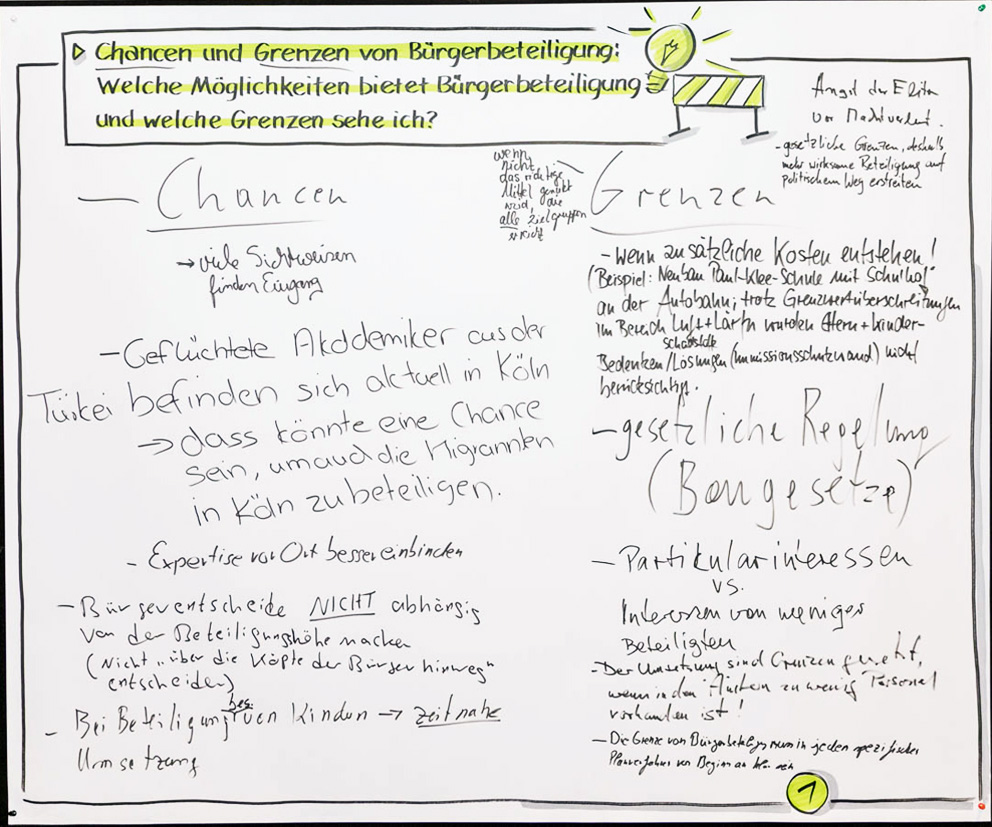 Chancen und Grenzen von Bürgerbeteiligung:
Welche Möglichkeiten bietet Bürgerbeteiligung
und welche Grenzen sehe ich?
Chancen
→ viele Sichtweisen
finden Eingang
- Geflüchtete Akademiker aus der
Türkei befinden sich aktuell in Köln
→ dass könnte eine Chance
sein, um auch die Migranten
in Köln zu beteiligen.
- Expertise vor Ort besser einbinden
- Bürgerentscheide NICHT abhängig
von der Beteiligungshöhe machen
(Nicht „über die Köpfe der Bürger hinweg"
entscheiden)
- Bei Beteiligung bes. von Kindern → zeitnahe
Umsetzung
Angst der Eliten
vor Machtverlust.
- gesetzliche Grenzen, deshalb
mehr wirksame Beteiligung auf
politischem Weg erstreiten
wenn
nicht
das richtige
Mittel genutzt
wird, die
alle Zielgruppen
erreicht
Grenzen
- wenn zusätzliche Kosten entstehen!
(Beispiel: Neubau Paul-Klee-Schule mit Schulhof
an der Autobahn; trotz Grenzwertüberschreitungen
im Bereich Luft + Lärm wurden Eltern + Kinder-
Bedenken/Lösungen (Immissionsschutzwand) nicht
berücksichtigt.
- gesetzliche Regelung
(Baugesetze)
- Partikularinteressen
vs.
Interessen von weniger
Beteiligten
- Der Umsetzung sind Grenzen gesetzt,
wenn in den Ämtern zu wenig Personal
vorhanden ist!
- Die Grenze von Bürgerbeteiligung muss in jedem spezifischen
Planverfahren von Beginn an klar sein
1